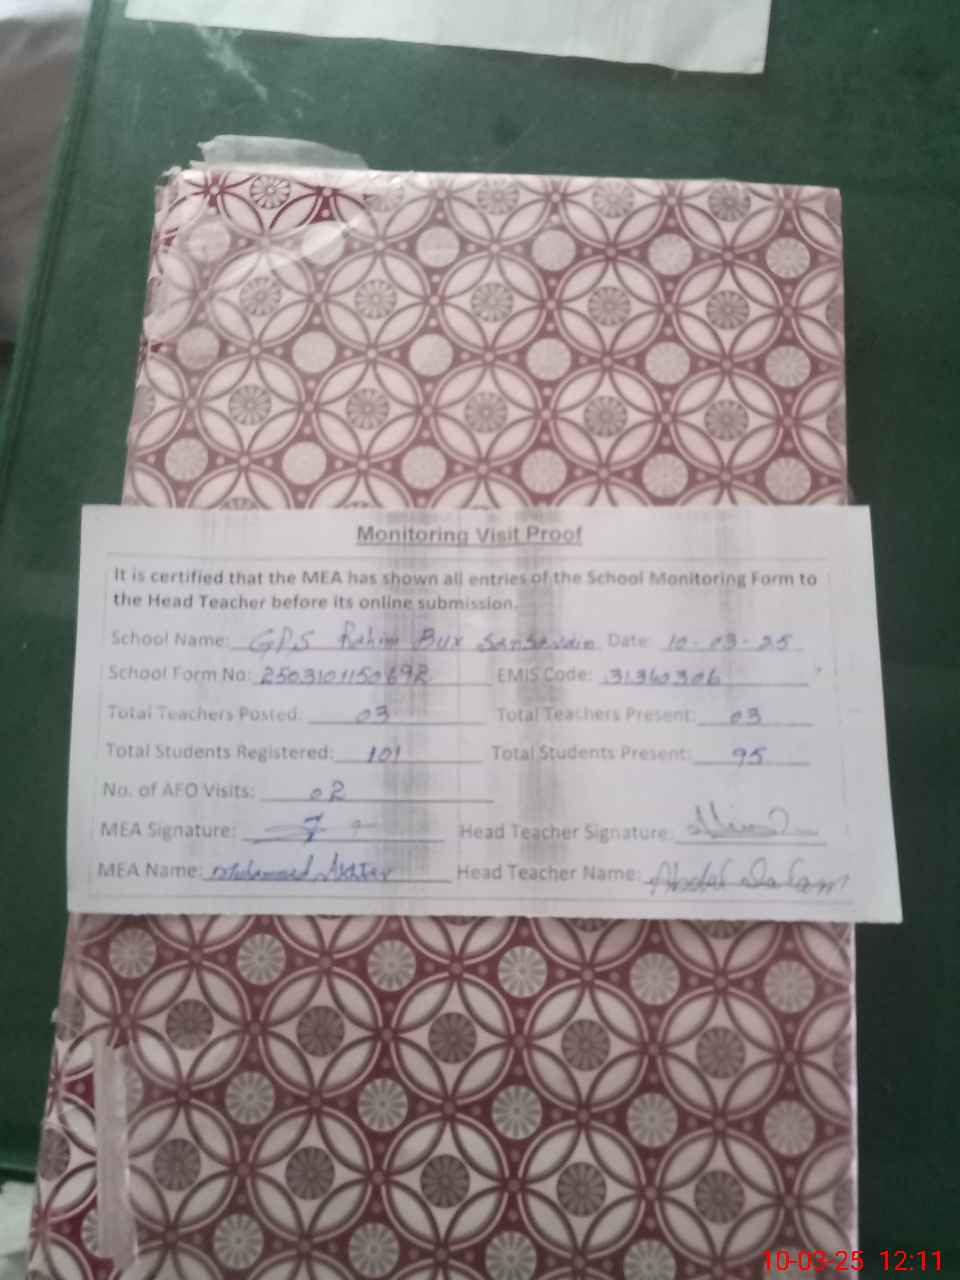 Monitoring Visit Proof
It is certified that the MEA has shown all entries of the School Monitoring Form to
the Head Teacher before its online submission.
School Name: GPS Rahim Bux Date: 10-03-25
School Form No: 2503101150692 EMIS Code: 31360306
Total Teachers Posted: 03 Total Teachers Present: 03
Total Students Registered: 101 Total Students Present: 95
No. of AFO Visits: 02
MEA Signature: Head Teacher Signature:
MEA Name: Muhammad Akhter Head Teacher Name: Abdul Salam
10-03-25 12:11